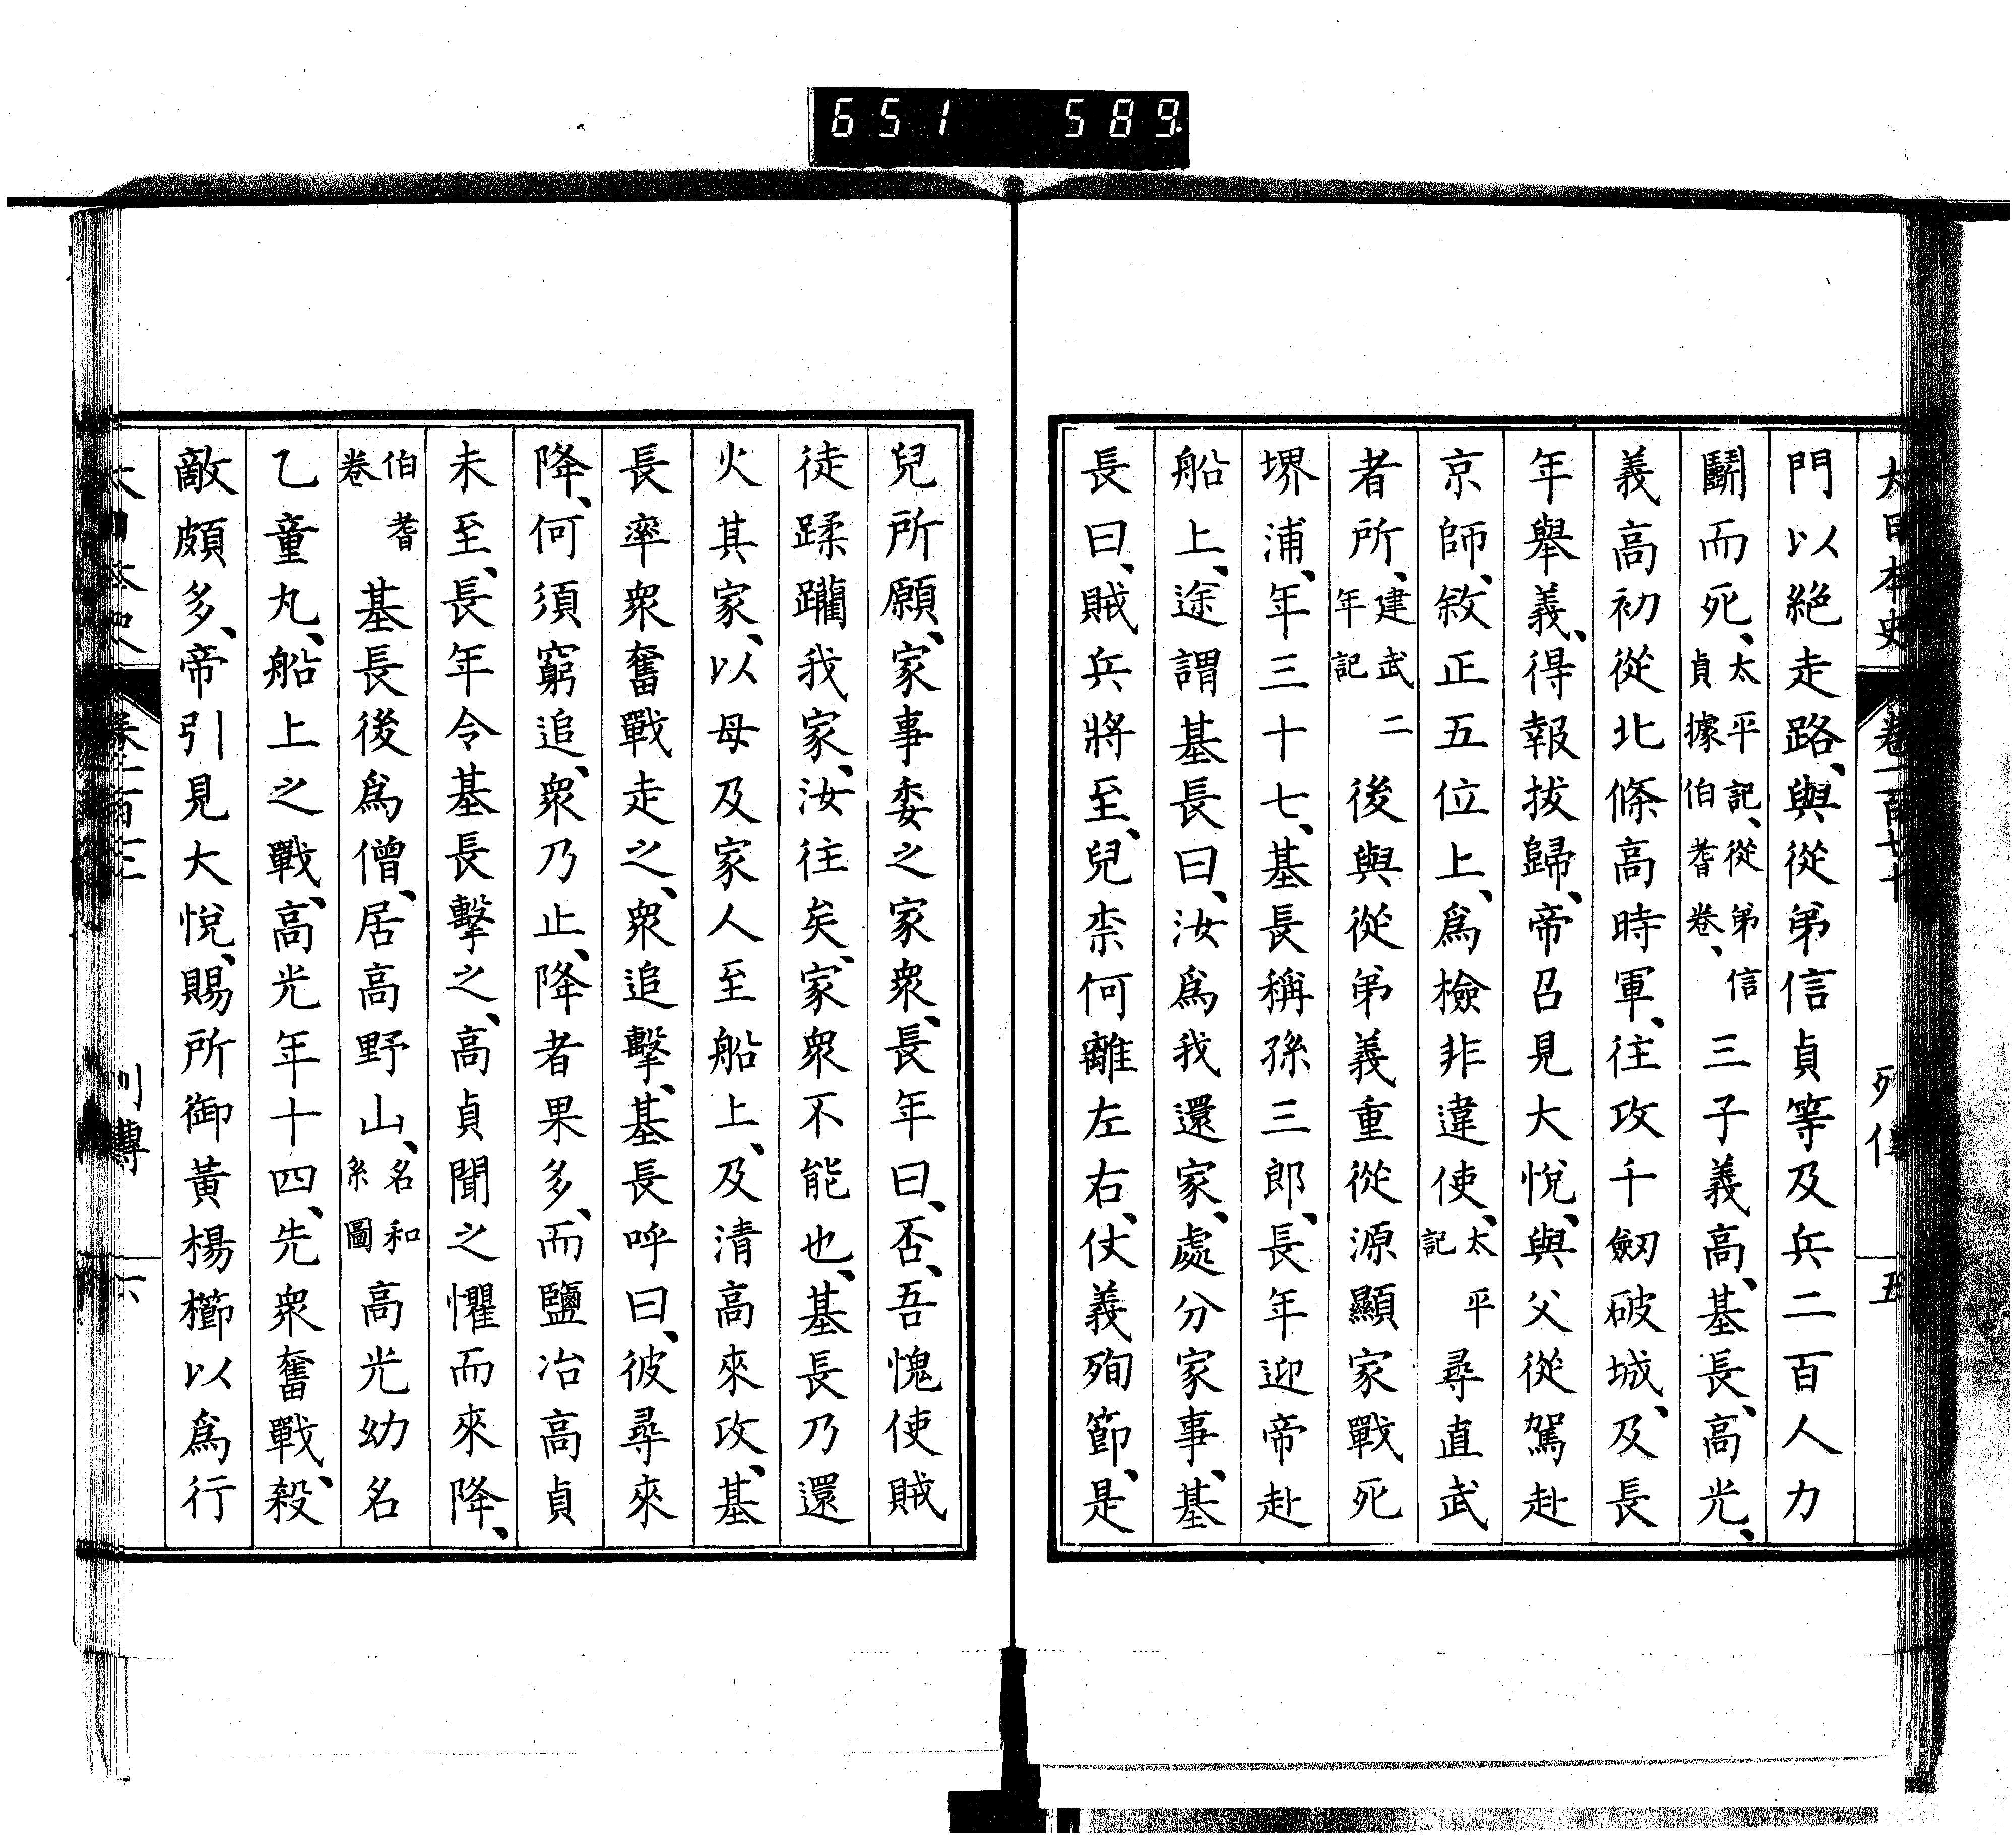 651 589.
大日本史 卷一百七十 列傳 五
門以絕走路、與從弟信貞等及兵二百人力
鬭而死、太平記、從弟信貞據伯耆卷、三子義高、基長、高光、
義高初從北條高時軍、往攻千劒破城、及長
年舉義、得報拔歸、帝召見大悅、與父從駕赴
京師、敘正五位上、爲檢非違使、太平記尋直武
者所、建武二年記後與從弟義重從源顯家戰死
堺浦、年三十七、基長稱孫三郎、長年迎帝赴
船上、途謂基長曰、汝爲我還家、處分家事、基
長曰、賊兵將至、兒柰何離左右、仗義殉節、是
兒所願、家事委之家衆、長年曰、否、吾愧使賊
徒蹂躪我家、汝往矣、家衆不能也、基長乃還
火其家、以母及家人至船上、及清高來攻、基
長率衆奮戰走之、衆追擊、基長呼曰、彼尋來
降、何須窮追、衆乃止、降者果多、而鹽冶高貞
未至、長年令基長擊之、高貞聞之懼而來降、
伯耆卷基長後爲僧、居高野山、名和系圖高光幼名
乙童丸、船上之戰、高光年十四、先衆奮戰、殺
敵頗多、帝引見大悅、賜所御黃楊櫛以爲行
列傳 六